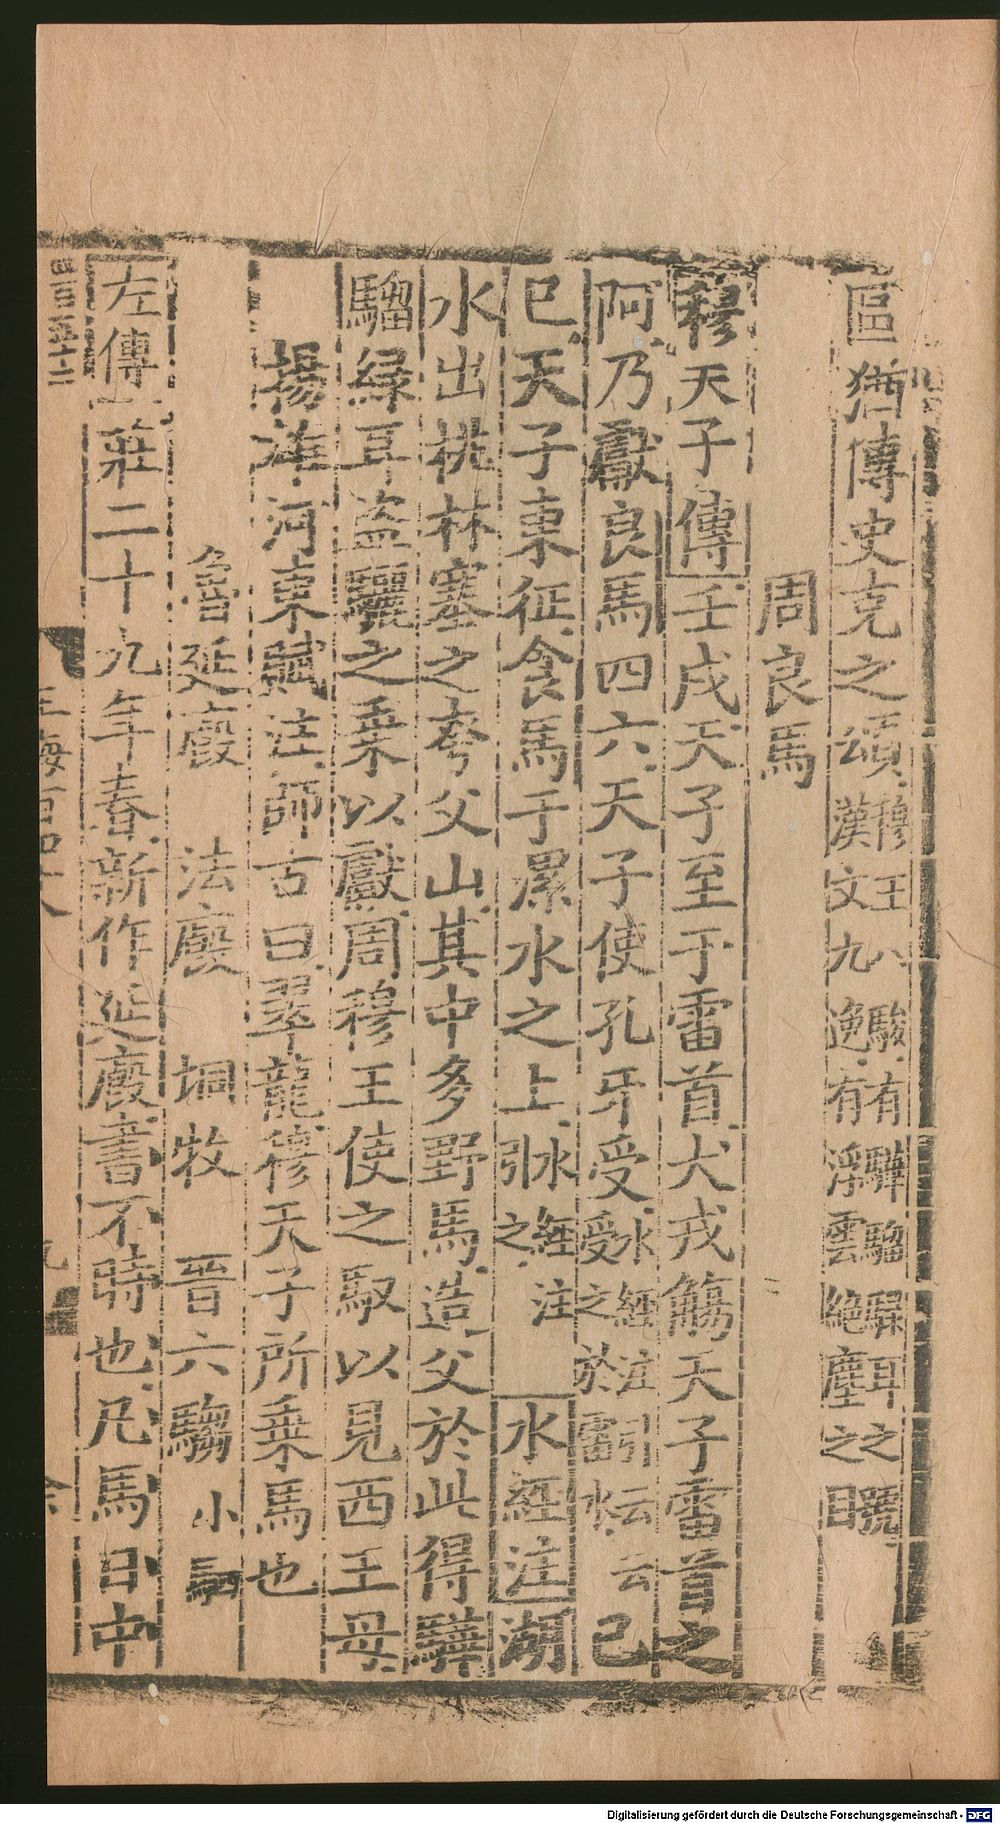 區猶傳史克之頌穆王八駿有驊騮騄耳之號漢文九逸有浮雲絕塵之目
周良馬
穆天子傳壬戌天子至于雷首犬戎觴天子雷首之
阿乃獻良馬四六天子使孔牙受水經注引云云受之於雷水己
巳天子東征食馬于漯水之上水經注引之水經注湖
水出桃林塞之夸父山其中多野馬造父於此得驊
騮綠耳盜驪之乗以獻周穆王使之馭以見西王母
揚雄河東賦注師古曰翠龍穆天子所乗馬也
魯延廄 法廄 坰牧 晉六騶 小駟
左傳莊二十九年春新作延廄書不時也凡馬日中
Digitalisierung gefördert durch die Deutsche Forschungsgemeinschaft - DFG